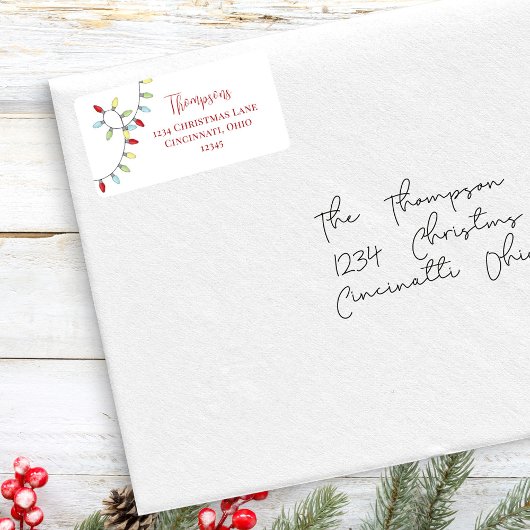 Thompsons
1234 Christmas Lane
Cincinnati, Ohio
12345
The Thompson
1234 Christms
Cincinatti Ohio